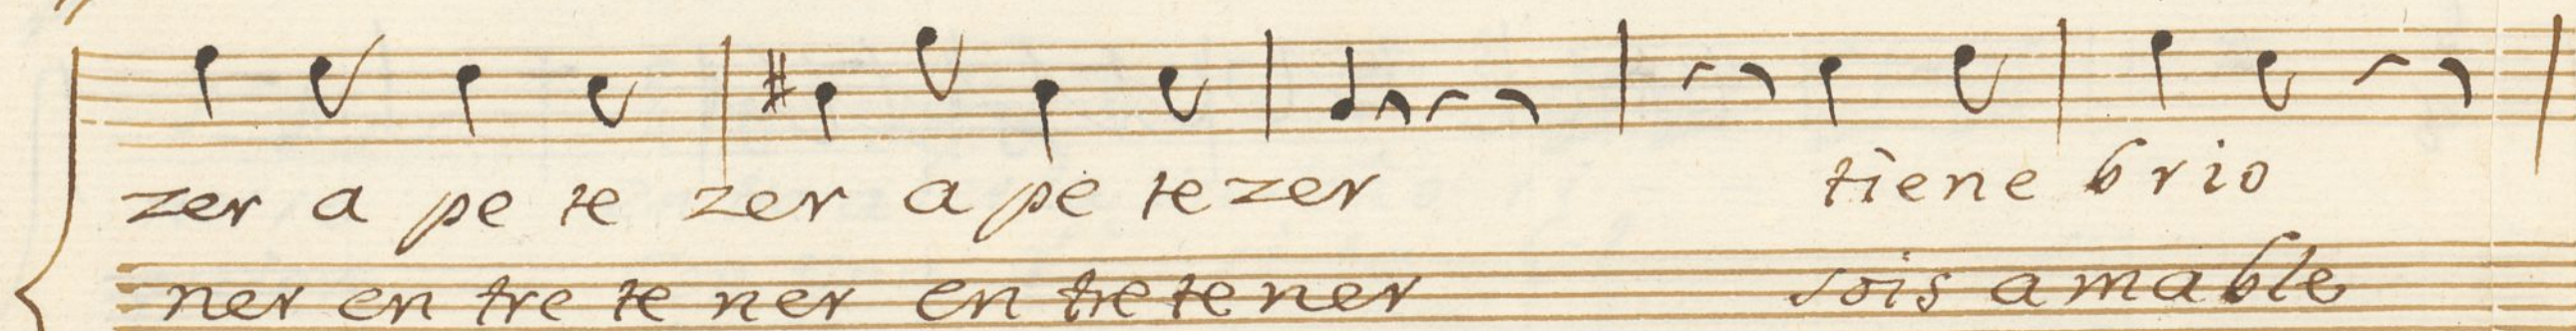 zer a pe te zer a pe te zer tiene brio
ner en tre te ner en tre te ner sois amable